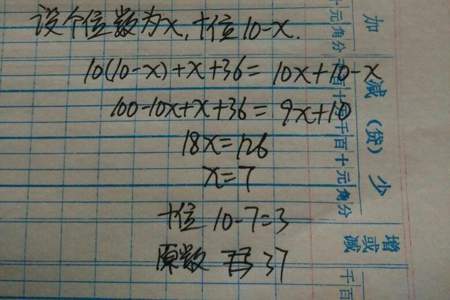 设个位数为x,十位10-x.
10(10-x)+x+36=10x+10-x
100-10x+x+36=9x+10
18x=126
x=7
十位 10-7=3
原数为37
加
减
(贷)
少
增或减
十元角分
千百十元角分
千百